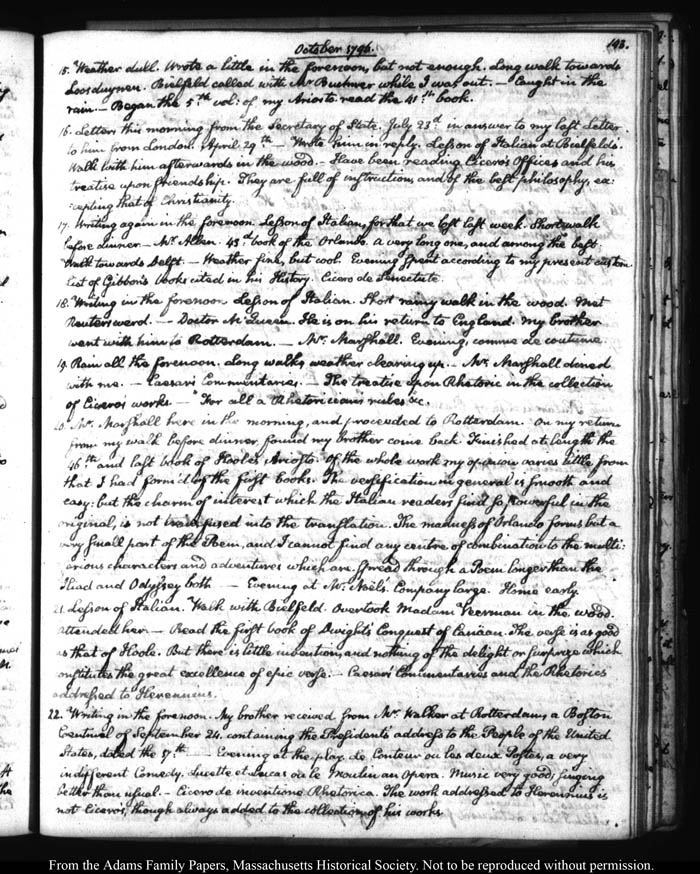 October 1796.
198.
15. Weather dull. Wrote a little in the forenoon, but not enough. Long walk towards
Loosduynen. Bielfeld called with Mr Buchner while I was out. — Caught in the
rain. — Began the 5th vol: of my Ariosto read the 41st book.
16. Letter this morning from the Secretary of State. July 23d in answer to my last Letter
to him from London. April. 29th — Wrote him in reply. Lesson of Italian at Bielfelds.
Walk with him afterwards in the wood. — Have been reading Cicero's Offices and his
treatise upon friendship. They are full of instruction, and of the best philosophy, ex:
cepting that of Christianity.
17. Writing again in the forenoon. Lesson of Italian, for that we lost last week. Short walk
before dinner — Mr. Allen. 43d book of the Orlando. a very long one, and among the best.
Walk towards Delft. — Weather fine, but cool. Evening spent according to my present custom
List of Gibbon's books cited in his History. Cicero de Senectute.
18. Writing in the forenoon Lesson of Italian. Short rainy walk in the wood. Met
— Doctor McQueen. He is on his return to England. My brother
went with him to Rotterdam. — Mr. Marshall. Evening, comme de coutume.
19. Rain all the forenoon. Long walk, weather clearing up. — Mr. Marshall dined
with me. — Caesar's Commentaries. — The treatise upon Rhetoric in the collection
of Cicero's works. — "For all a Rhetorician's rules" &c.
20. Mr. Marshall here in the morning, and proceeded to Rotterdam. On my return
from my walk before dinner, found my brother come back. Finished at length the
46th and last book of Hoole's Ariosto. Of the whole work my opinion varies little from
that I had form'd of the first books. The versification in general is smooth and
easy: but the charm of interest which the Italian readers find so powerful in the
original, is not transfused into the translation. The madness of Orlando forms but a
very small part of the Poem, and I cannot find any centre of combination to the multi:
farious characters and adventures which are spread through a Poem longer than the
Iliad and Odyssey both. — Evening at Mr. Noël's. Company large. Home early.
21. Lesson of Italian. Walk with Bielfeld. Overtook Madam Veerman in the wood.
attended her. — Read the first book of Dwight's Conquest of Canäan. The verse is as good
as that of Hoole. But there is little invention, and nothing of the delight or surprize which
constitutes the great excellence of epic verse. — Caesar's Commentaries and the Rhetorics
addressed to Herennius.
22. Writing in the forenoon. My brother received from Mr. Walker at Rotterdam, a Boston
Centinel of September 24. containing the President's address to the People of the United
States, dated the 17th — Evening at the play. Le Conteur ou les deux Postes, a very
indifferent Comedy. Lucette et Lucas ou le an Opera. Music very good; singing
better than usual. — Cicero de inventione Rhetorica. The work addressed to Herennius is
not Cicero's, though always added to the collection of his works.
From the Adams Family Papers, Massachusetts Historical Society. Not to be reproduced without permission.